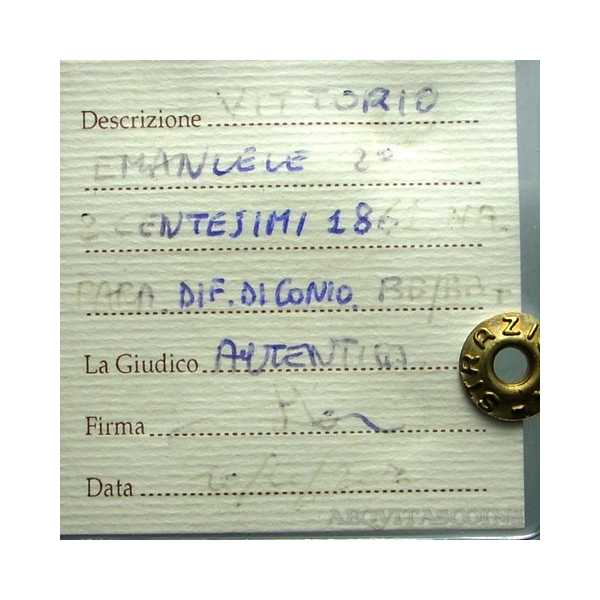 Descrizione VITTORIO
EMANUELE 2°
CENTESIMI 186 NA.
RARA. DIF. DI CONIO. BB/
La Giudico AUTENTICA
Firma
Data
AEQVITASCOINS
RAZI